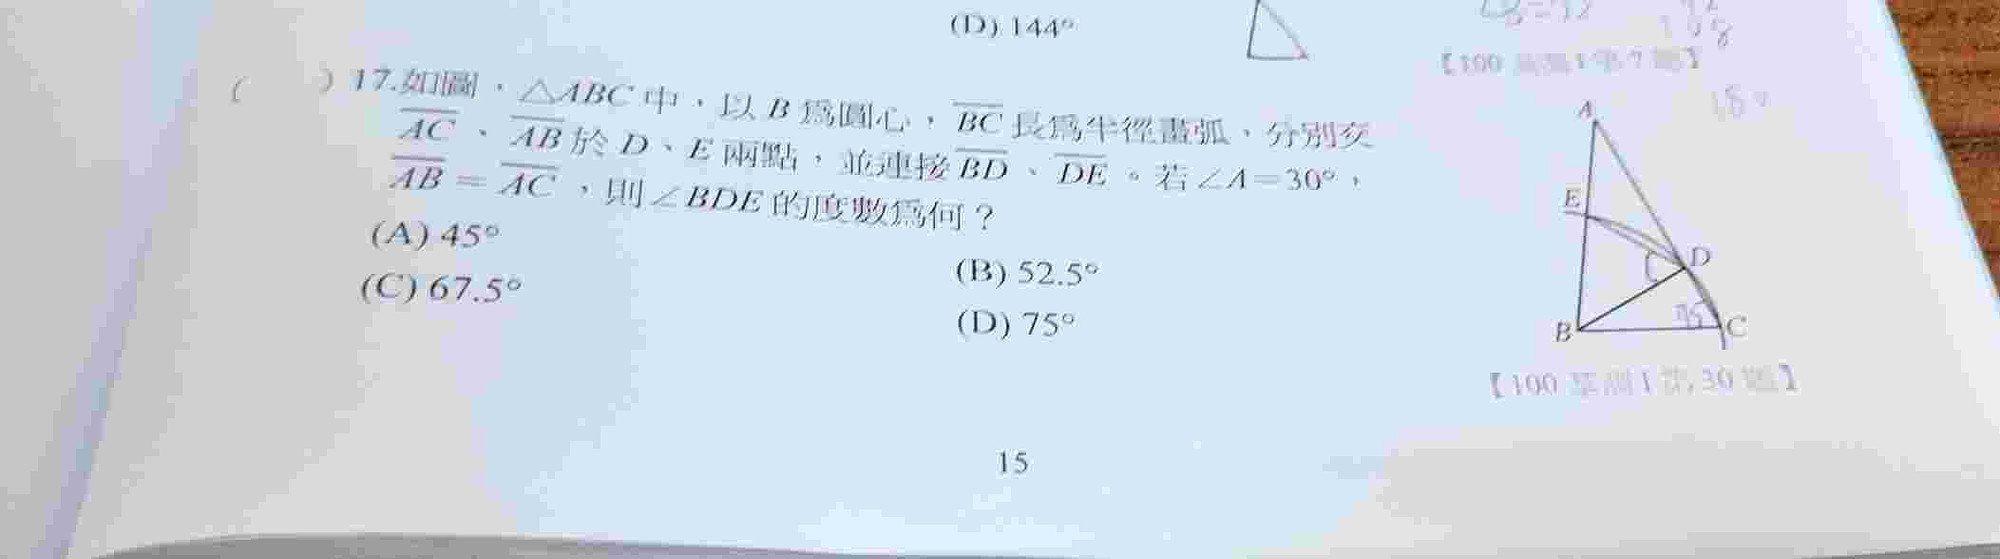 (D) 144°
( ) 17.如圖，△ABC 中，以 B 為圓心，BC 長為半徑畫弧，分別交
AC、AB 於 D、E 兩點，並連接 BD、DE。若∠A=30°，
AB = AC，則∠BDE 的度數為何？
(A) 45°
(B) 52.5°
(C) 67.5°
(D) 75°
A
E
D
B
C
75
【100 基測 1 第 7 題】
【100 基測 1 第 30 題】
15